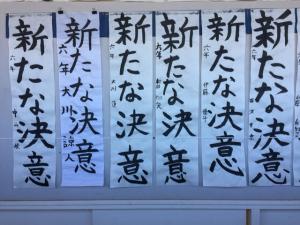 新たな決意
六年
新たな決意
六年 大川 諒人
新たな決意
六年 大川
新たな決意
六年
新たな決意
六年 伊藤
新たな決意
六年